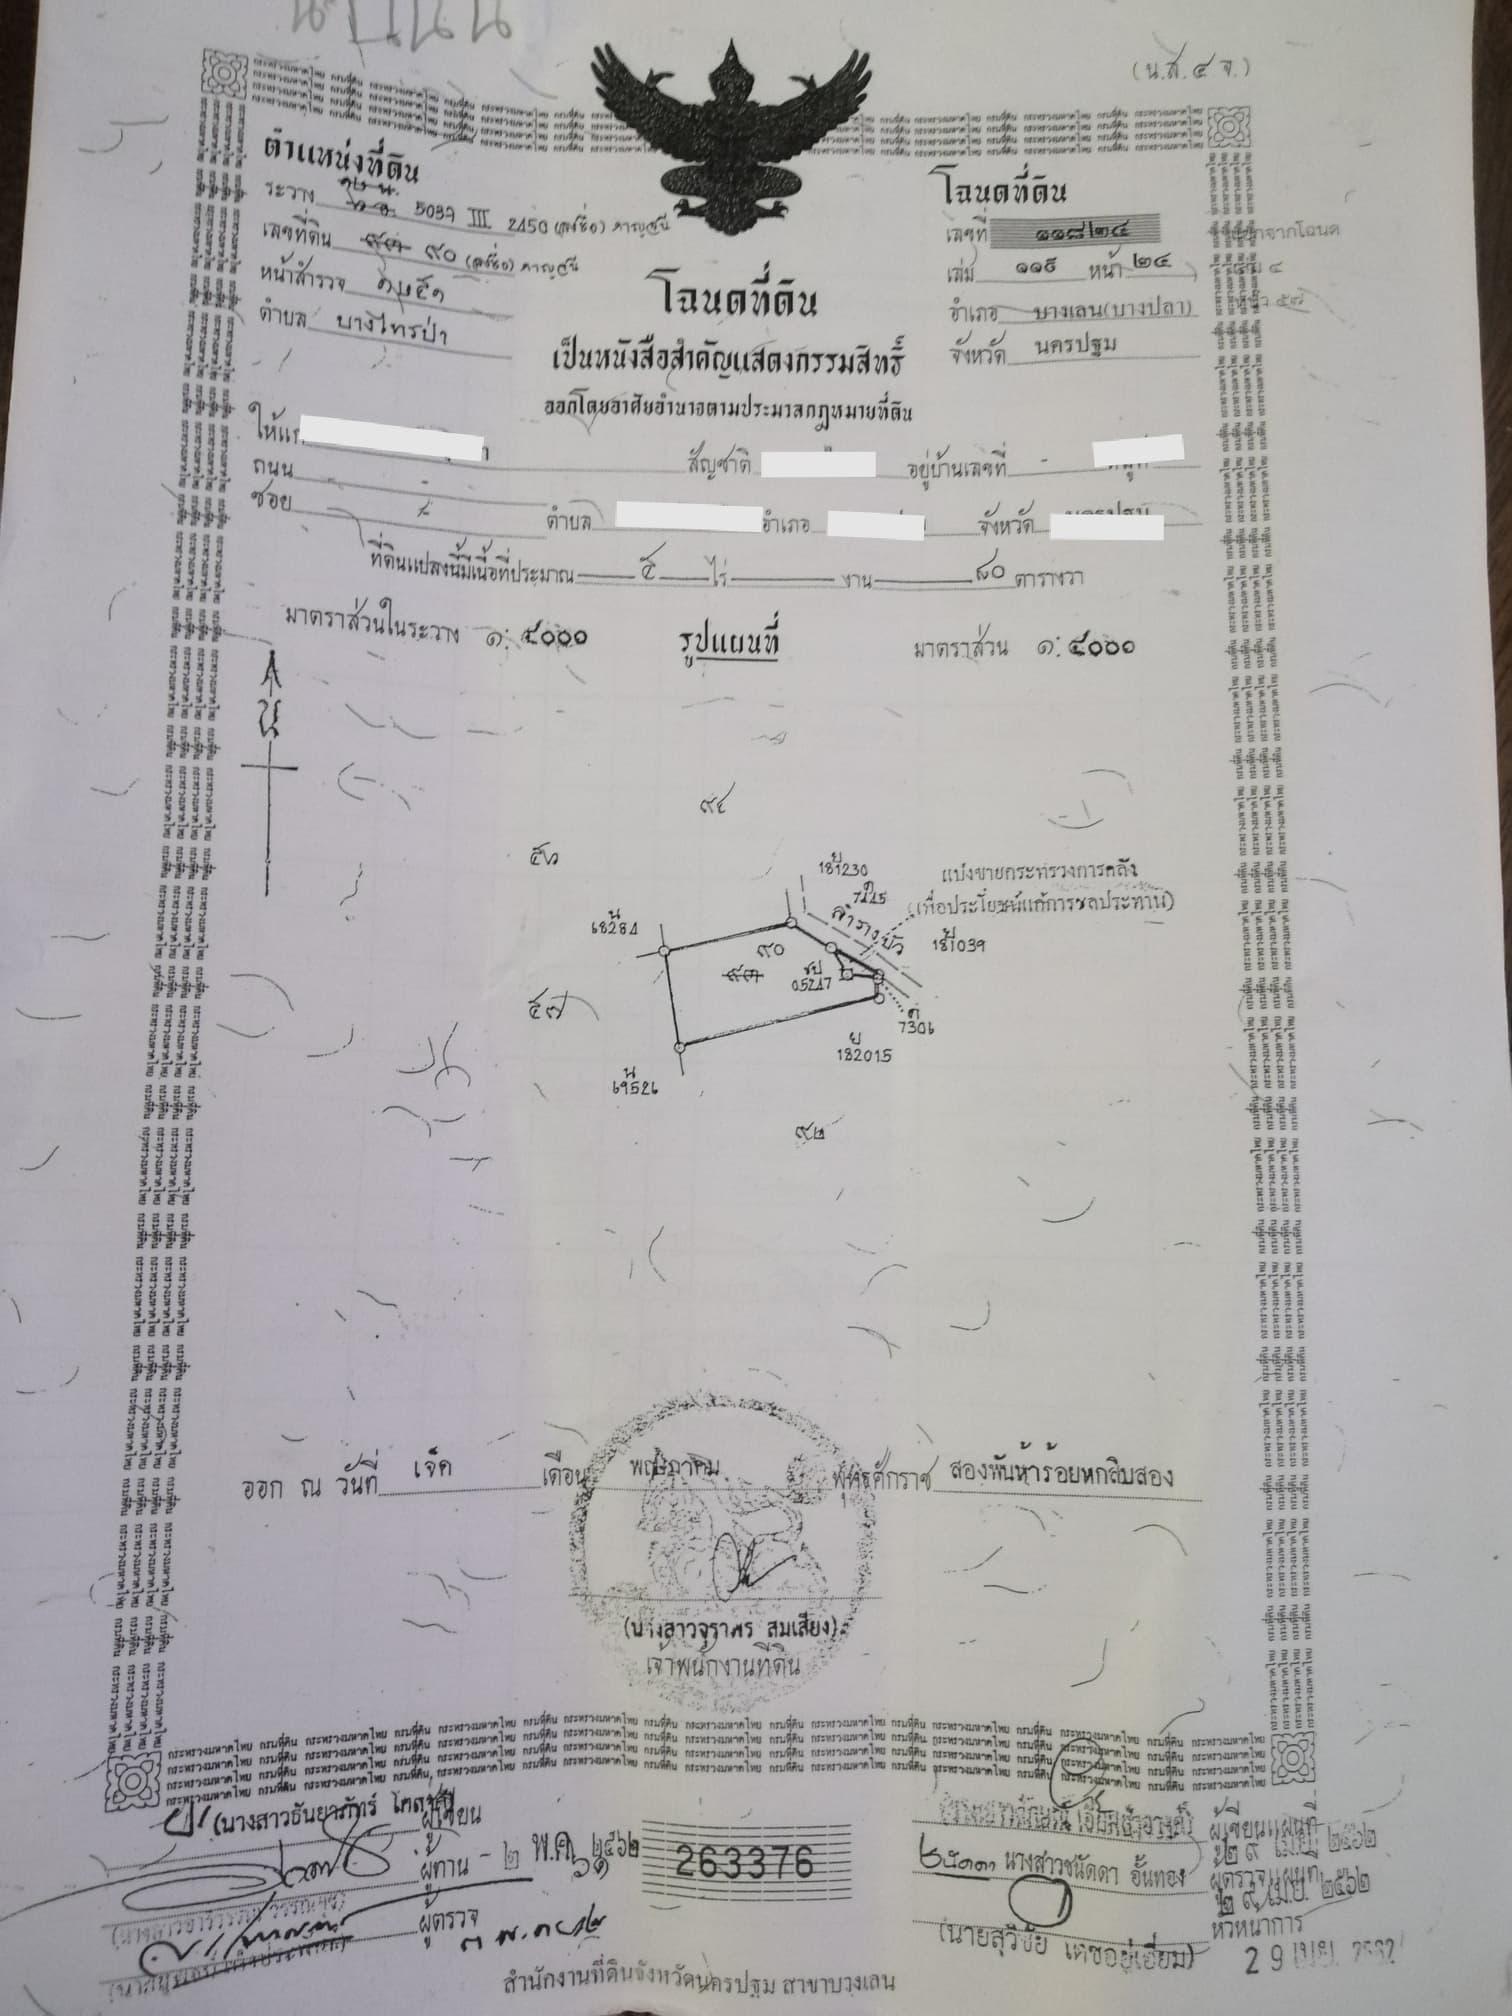 (น.ส. ๔ จ.)
ตำแหน่งที่ดิน
ระวาง 5037 III 2450 (ลงชื่อ)
เลขที่ดิน ๙๓ ๙๐ (ลงชื่อ)
หน้าสำรวจ
ตำบล บางไทรป่า
โฉนดที่ดิน
เลขที่ ๑๑๘๒๔
เล่ม ๑๑๙ หน้า ๒๔
อำเภอ บางเลน(บางปลา)
จังหวัด นครปฐม
โฉนดที่ดิน
เป็นหนังสือสำคัญแสดงกรรมสิทธิ์
ออกโดยอาศัยอำนาจตามประมวลกฎหมายที่ดิน
สัญชาติ อยู่บ้านเลขที่ -
ถนน -
ซอย ตำบล อำเภอ จังหวัด นครปฐม
ที่ดินแปลงนี้มีเนื้อที่ประมาณ ๕ ไร่ งาน ๘๐ ตารางวา
มาตราส่วนในระวาง ๑:๔๐๐๐ รูปแผนที่ มาตราส่วน ๑:๔๐๐๐
น
๙๔
๕๖
181230
แบ่งขายกระทรวงการคลัง
(เพื่อประโยชน์แก่การชลประทาน)
ลำรางบัว
181039
๙๐
๙๓
ชป
05247
๔๗
7306
ย
182015
น
69526
๙๒
ออก ณ วันที่ เจ็ด เดือน พฤษภาคม พุทธศักราช สองพันห้าร้อยหกสิบสอง
(นางสาวจุราพร สมเสียง)
เจ้าพนักงานที่ดิน
กระทรวงมหาดไทย กรมที่ดิน
ผู้เขียน
ผู้ทาน - ๒ พ.ค. ๒๕๖๒
ผู้ตรวจ
263376
ผู้เขียนแผนที่
๒๙ เม.ย. ๒๕๖๒
นางสาวชนัดดา อั้นทอง ผู้ตรวจแผนที่
๒๙ เม.ย. ๒๕๖๒
(นายสุวิชัย เดชอยู่เอี่ยม) หัวหน้าการ
29 เม.ย. 2562
สำนักงานที่ดินจังหวัดนครปฐม สาขาบางเลน